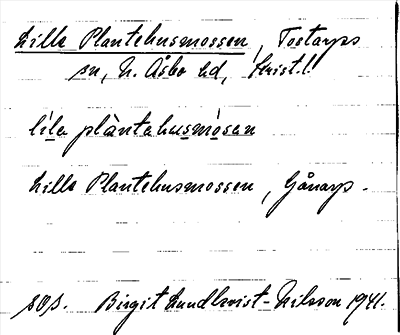 Lilla Plantehusmossen, Tostarps
sn, N. Åsbo hd, Krist.l.
líla plàntahusmósan
Lilla Plantehusmossen, Gånarp.
sos. Birgit Lundkvist-Nilsson 1941.